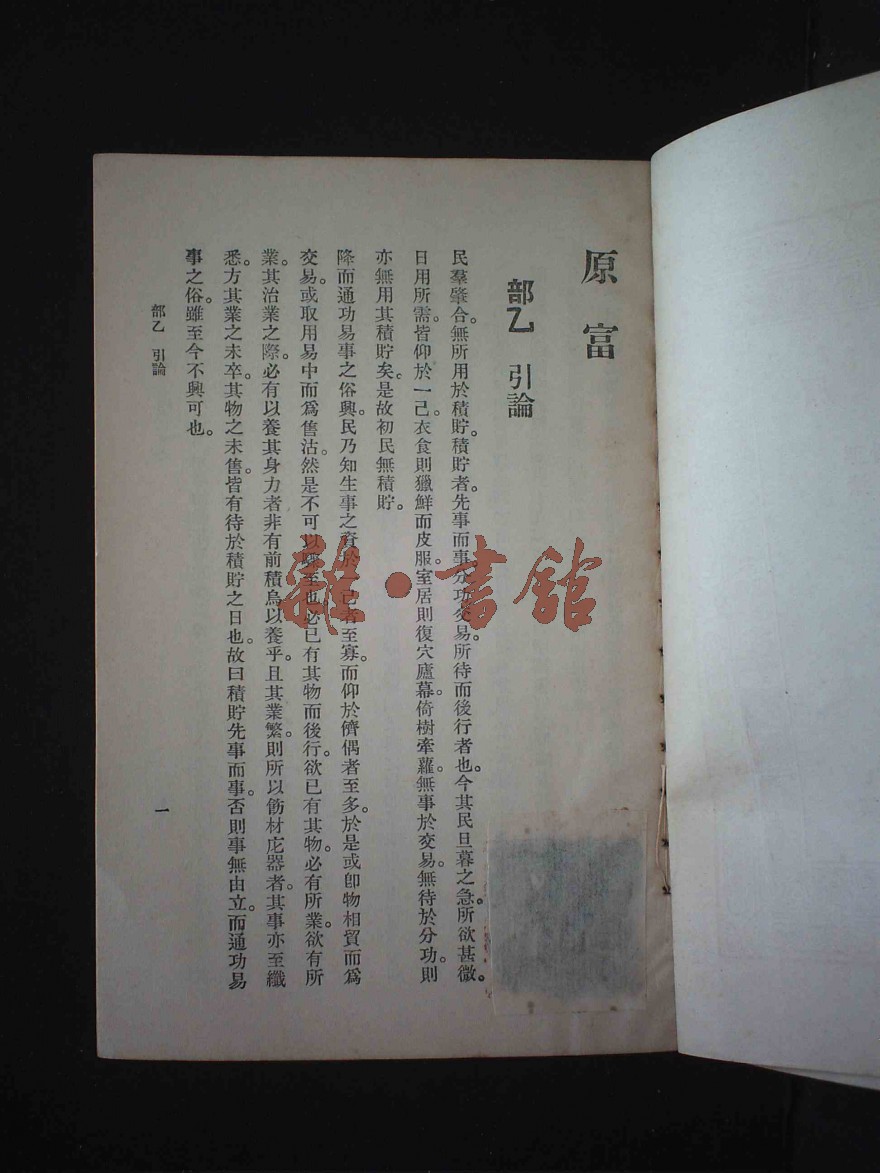 原富
部乙 引論
民羣肇合。無所用於積貯。積貯者。先事而事。分功交易。所待而後行者也。今其民旦暮之急。所欲甚微。
日用所需。皆仰於一己。衣食則獵鮮而皮服。室居則復穴廬幕。倚樹牽蘿。無事於交易。無待於分功。則
亦無用其積貯矣。是故初民無積貯。
降而通功易事之俗興。民乃知生事之資於己者至寡。而仰於儕偶者至多。於是或卽物相貿而爲
交易。或取用易中而爲售沽。然是不可以驟至也。必已有其物而後行。欲已有其物。必有所業。欲有所
業。其治業之際。必有以養其身力者。非有前積。烏以養乎。且其業繁。則所以飭材庀器者。其事亦至纖
悉。方其業之未卒。其物之未售。皆有待於積貯之日也。故曰積貯先事而事。否則事無由立。而通功易
事之俗。雖至今不興可也。
部乙 引論
一
雜·書館